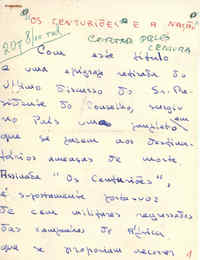 "OS CENTURIÕES" E A NAÇÃO"
CORTADO PELOS
CENSURA
Com este título
e uma epígrafe retirada do
último discurso do Sr. Pre-
sidente do Conselho, surgiu
no País um panfleto em
que se fazem aos destina-
tários ameaças de morte.
Assinado "Os Centuriões",
é supostamente porta-voz
de cem militares regressados
das campanhas de África
que se propõem recorrer
1